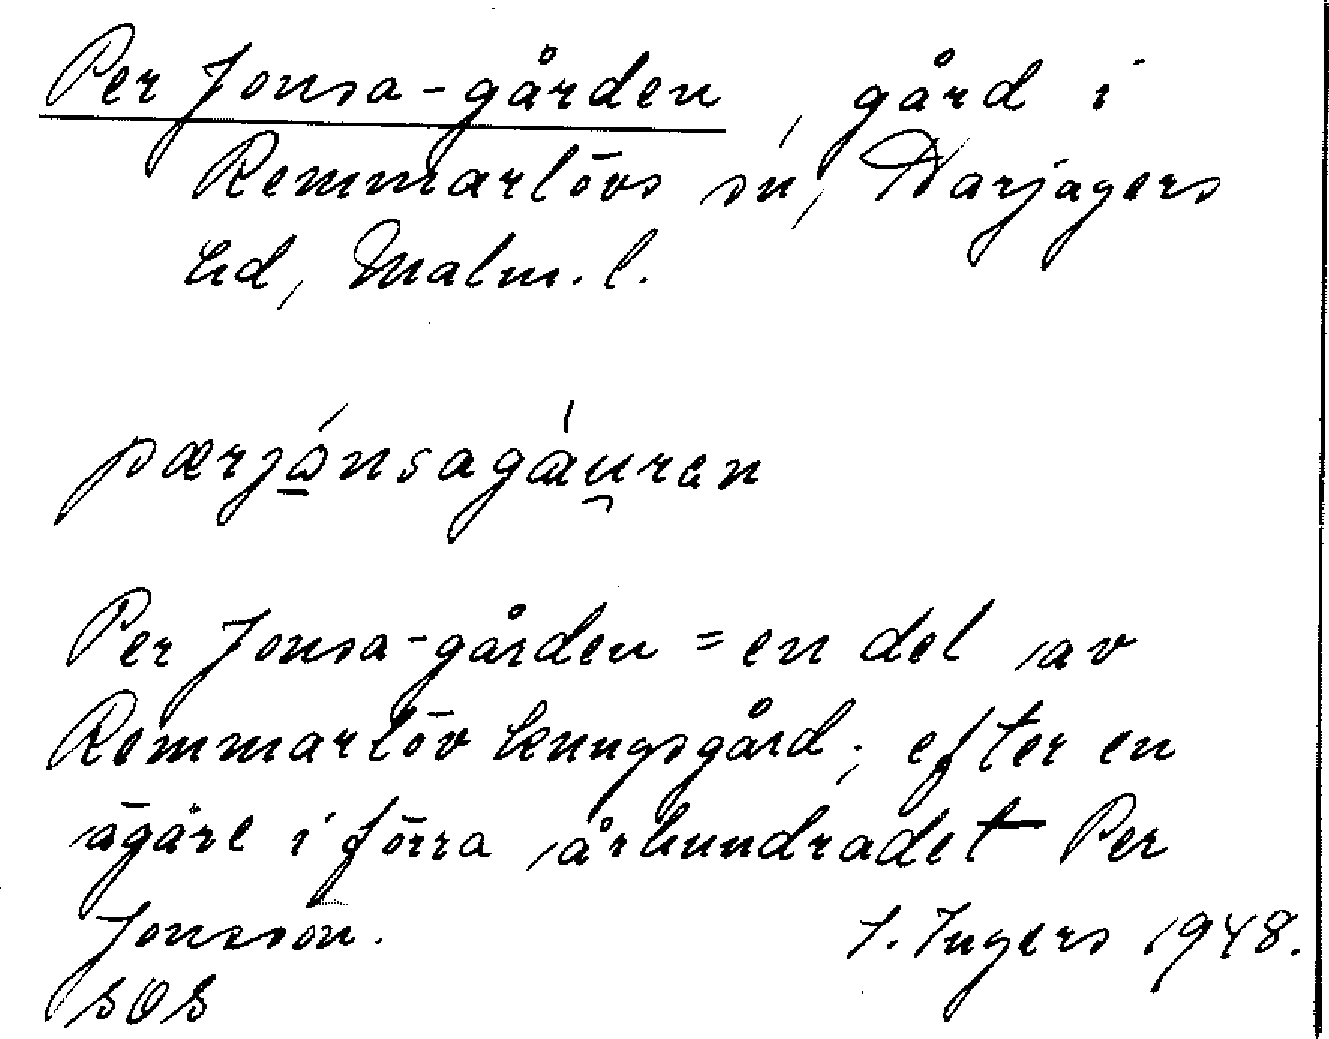 Per Jonsa-gården, gård i
Remmarlövs sn, Harjagers
hd, Malm. l.
pærjónsagáu̯ren
Per Jonsa-gården = en del av
Remmarlöv kungsgård; efter en
ägare i förra århundradet Per
Jonsson.
I. Ingers 1948.
SOS